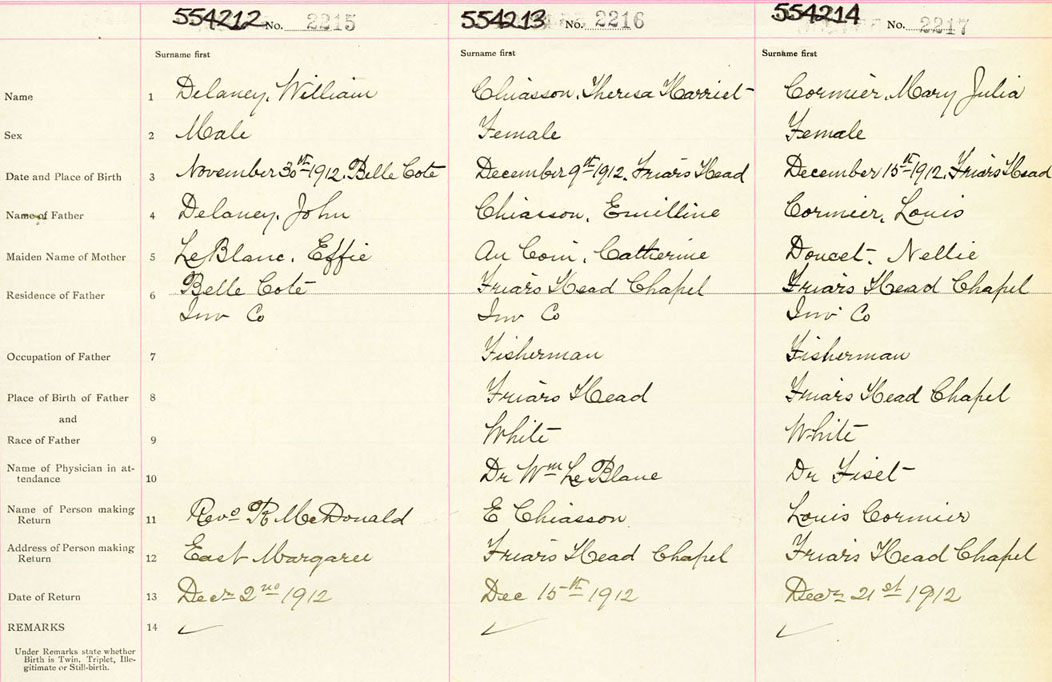 554212 No. 2215 554213 No. 2216 554214 No. 2217
Surname first Surname first Surname first
Name 1 Delaney, William Chiasson, Theresa Harriet Cormier, Mary Julia
Sex 2 Male Female Female
Date and Place of Birth 3 November 30th 1912. Belle Cote December 9th 1912, Friars Head December 15th 1912. Friars Head
Name of Father 4 Delaney, John Chiasson, Emilline Cormier, Louis
Maiden Name of Mother 5 Le Blanc, Effie Au Coin, Catherine Doucet, Nellie
Residence of Father 6 Belle Cote Friars Head Chapel Friars Head Chapel
Inv Co Inv Co Inv Co
Occupation of Father 7 Fisherman Fisherman
Place of Birth of Father 8 Friars Head Friars Head Chapel
and
Race of Father 9 White White
Name of Physician in at-
tendance 10 Dr Wm Le Blanc Dr Fiset
Name of Person making
Return 11 Revd R McDonald E Chiasson Louis Cormier
Address of Person making
Return 12 East Margaree Friars Head Chapel Friars Head Chapel
Date of Return 13 Decr 2nd 1912 Dec 15th 1912 Decr 21st 1912
REMARKS 14
Under Remarks state whether
Birth is Twin, Triplet, Ille-
gitimate or Still-birth.